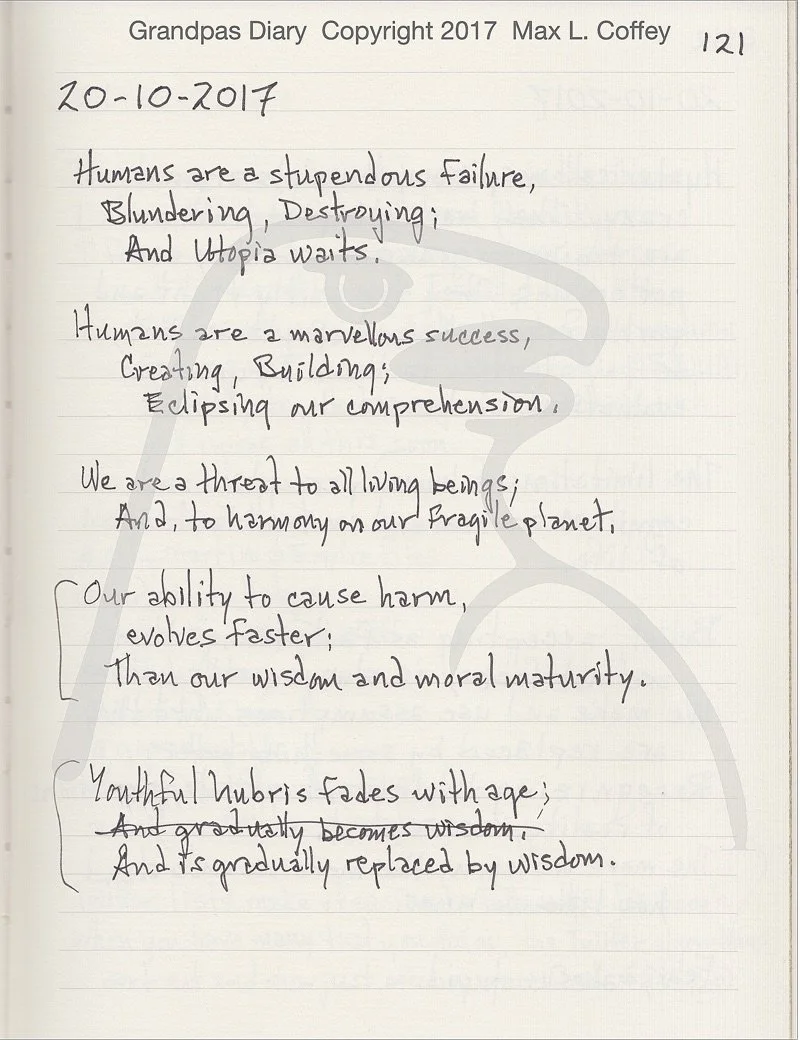 Grandpas Diary Copyright 2017 Max L. Coffey
121
20-10-2017
Humans are a stupendous failure,
Blundering, Destroying;
And Utopia waits.
Humans are a marvellous success,
Creating, Building;
Eclipsing our comprehension.
We are a threat to all living beings;
And, to harmony on our fragile planet.
Our ability to cause harm,
evolves faster;
Than our wisdom and moral maturity.
Youthful hubris fades with age;
And gradually becomes wisdom.
And is gradually replaced by wisdom.